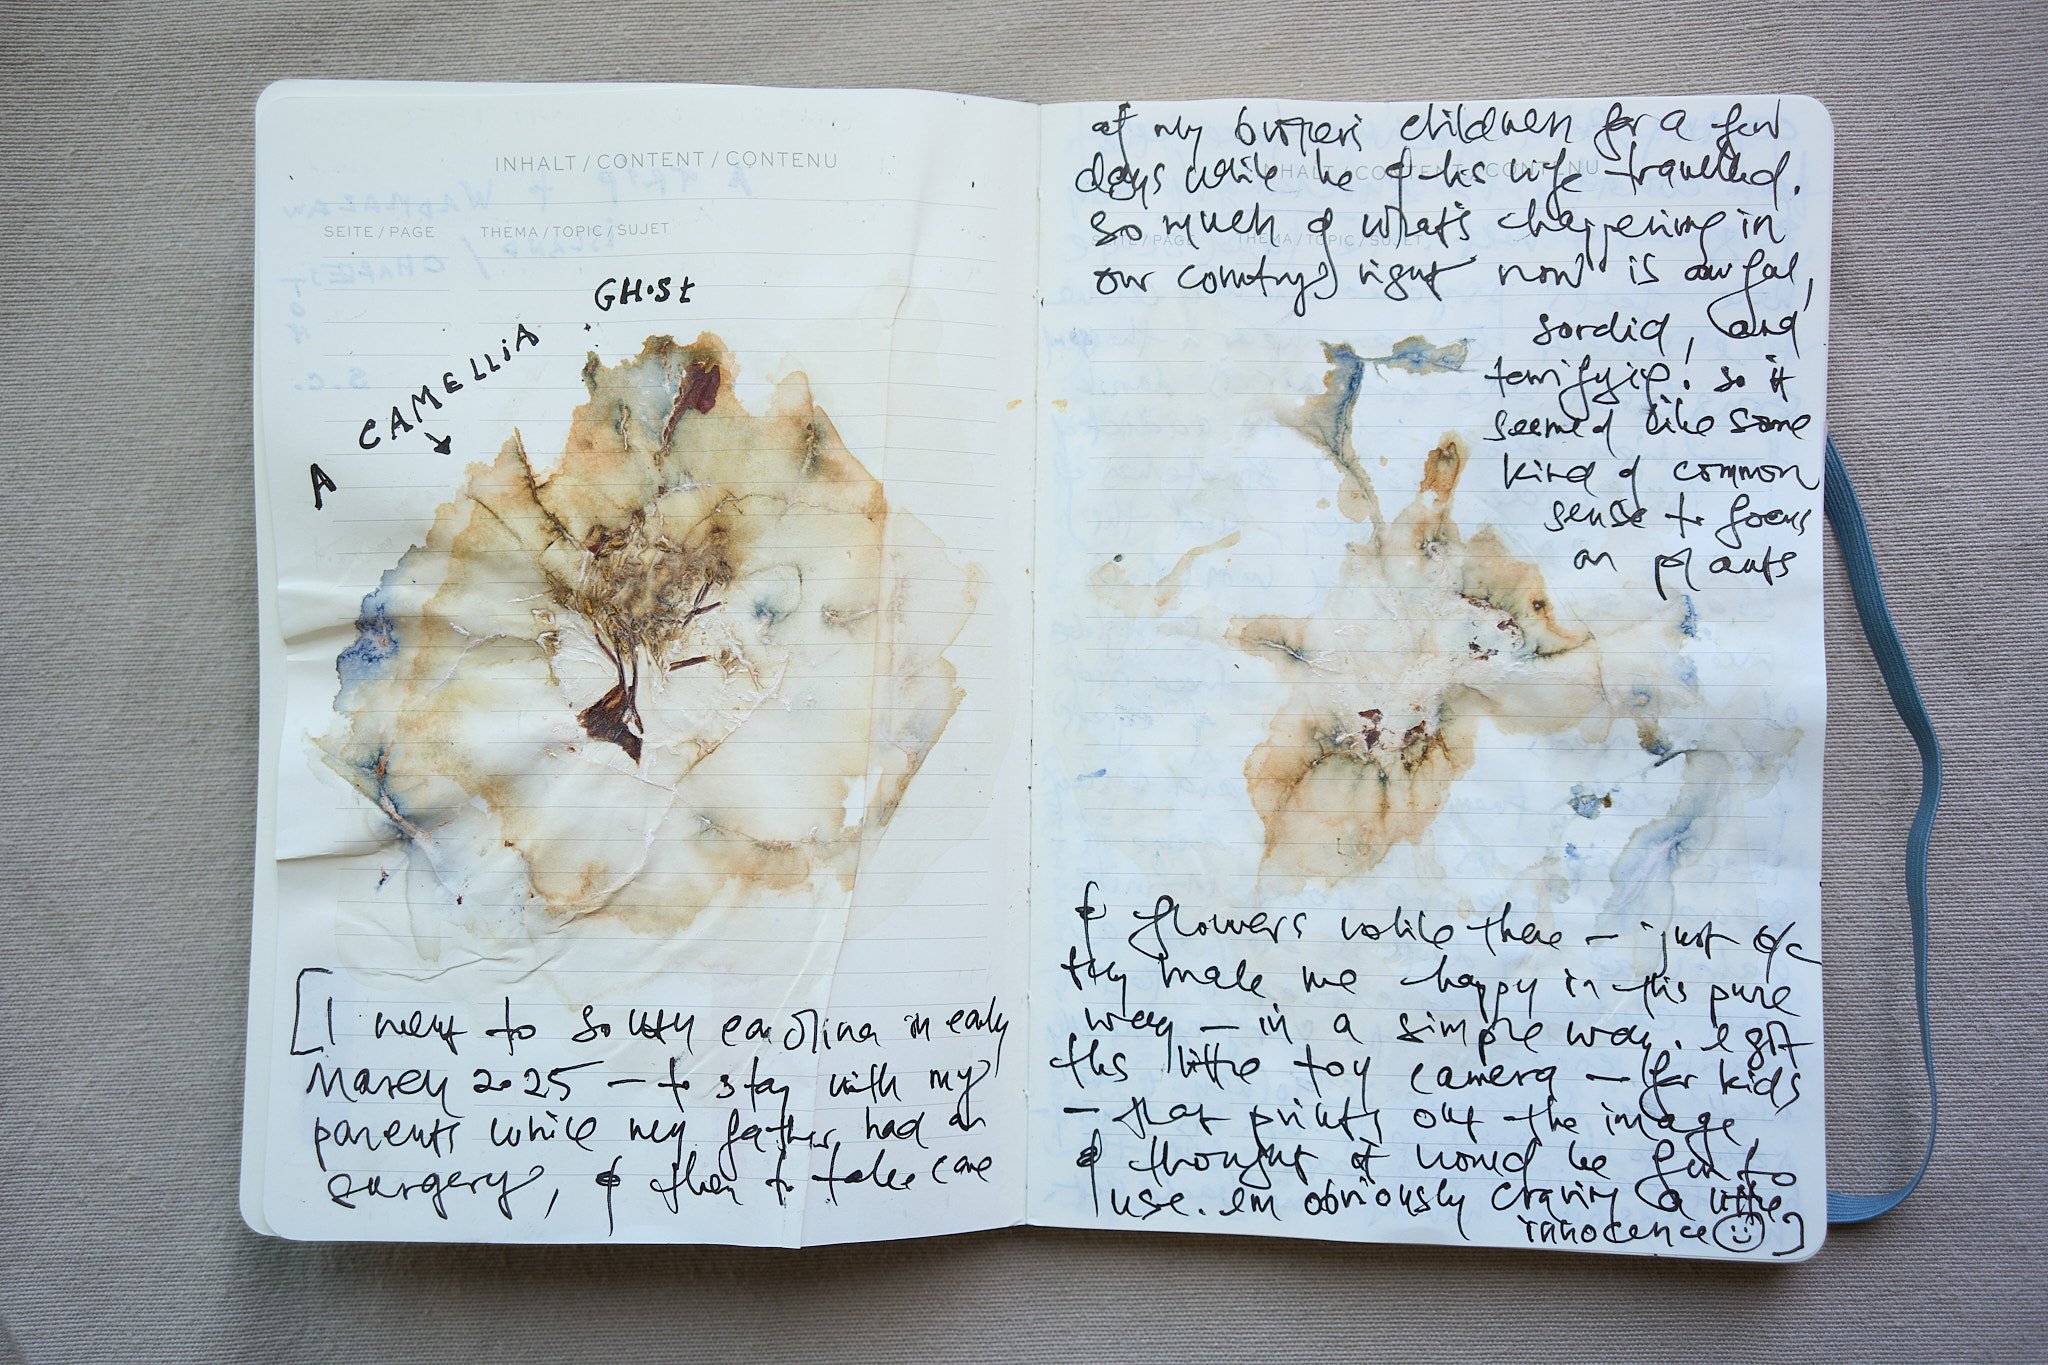 INHALT / CONTENT / CONTENU
SEITE / PAGE THEMA / TOPIC / SUJET
A CAMELLIA GHOST
[I went to South Carolina in early
March 2025 — to stay with my
parents while my father had an
surgery, & then to take care
of my brother's children for a few
days while he & his wife travelled.
INHALT / CONTENT / CONTENU
so much of what's happening in
SEITE / PAGE THEMA / TOPIC / SUJET
our country right now is awful,
sordid, and
terrifying. so it
seemed like some
kind of common
sense to focus
on plants
& flowers while there — just b/c
they make me happy in this pure
way — in a simple way. I got
this little toy camera — for kids
— that prints out the image,
& thought it would be fun to
use. I'm obviously craving a little
innocence ]